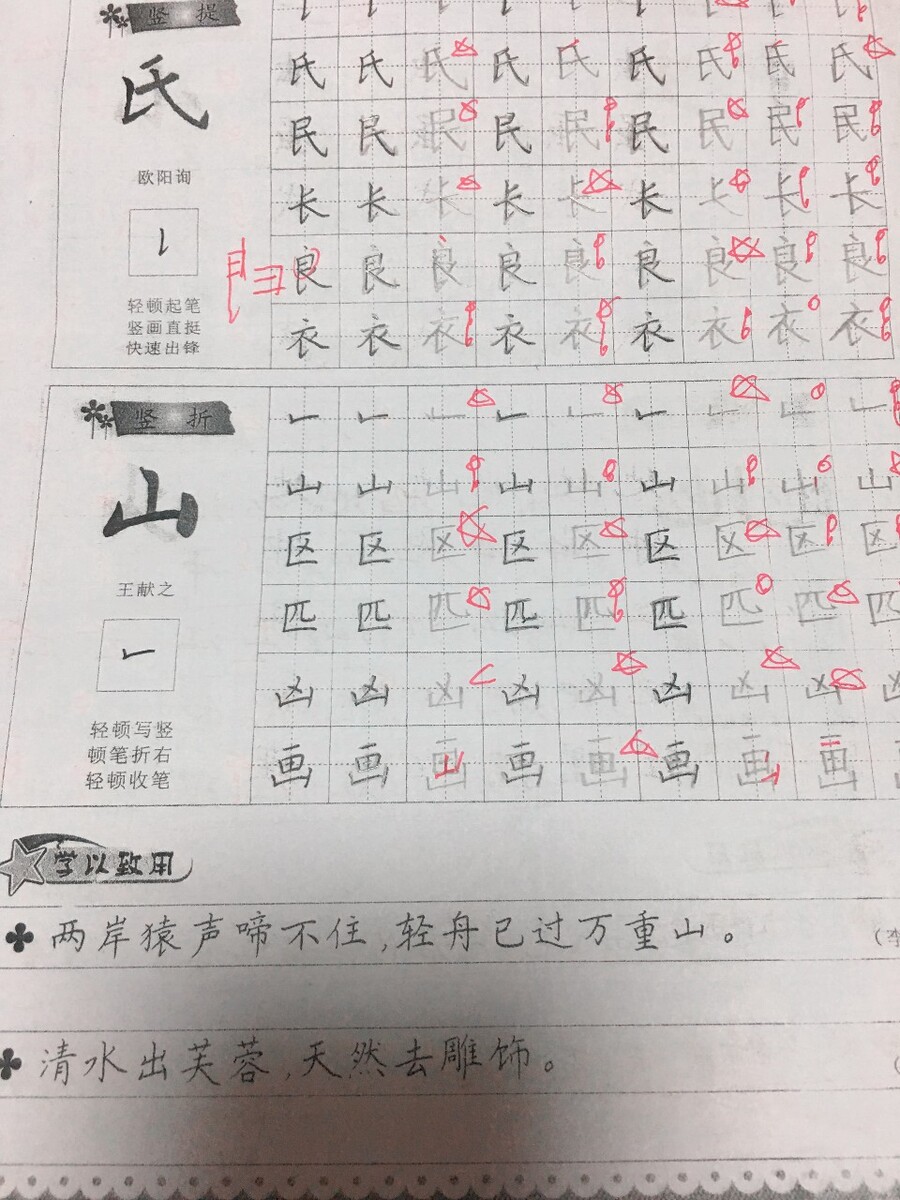 竖 提
氏
欧阳询
轻顿起笔
竖画直挺
快速出锋
氏 氏 氏 氏 氏 氏 氏 氏 氏
民 民 民 民 民 民 民 民 民
长 长 长 长 长 长 长 长 长
良 良 良 良 良 良 良 良 良
衣 衣 衣 衣 衣 衣 衣 衣 衣
竖 折
山
王献之
轻顿写竖
顿笔折右
轻顿收笔
山 山 山 山 山 山 山 山 山
区 区 区 区 区 区 区 区 区
匹 匹 匹 匹 匹 匹 匹 匹 匹
凶 凶 凶 凶 凶 凶 凶 凶
画 画 画 画 画 画 画 画
学以致用
两岸猿声啼不住,轻舟已过万重山。
清水出芙蓉,天然去雕饰。